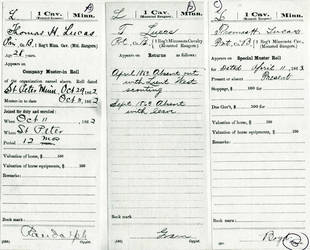 L | 1 Cav. | Minn.
(Mounted Rangers.)
Thomas H. Lucas
Co. B, 1 Reg't Minn. Cav. (Mtd. Rangers)
Age 21 years.
Appears on
Company Muster-in Roll
of the organization named above. Roll dated
St. Peter Minn Oct 29, 1862
Muster-in to date Oct 11, 1862
Joined for duty and enrolled:
When Oct 11, 1862
Where St Peter
Period 12 mos
Valuation of horse, $ 100
Valuation of horse equipments, $ 100
Remarks:
Book mark:
Randolph
Copyist.
L | 1 Cav. | Minn.
(Mounted Rangers.)
T. Lucas
Pvt, Co. B, 1 Reg't Minnesota Cavalry
(Mounted Rangers)
Appears on
Returns as follows:
April 1863 Absent out
with Lieut West
scouting
Sept 1863 Absent
with leave
Book mark:
Copyist.
L | 1 Cav. | Minn.
(Mounted Rangers.)
Thomas H. Lucas
Pvt, Co. B, 1 Reg't Minnesota Cav.
(Mounted Rangers.)
Appears on
Special Muster Roll
for dated April 11, 1863
Present
Stoppage, $ 100 for
Due Gov't, $ 100 for
Valuation of horse, $ 100
Valuation of horse equipments, $ 100
Remarks:
Book mark:
Boyd
Copyist.